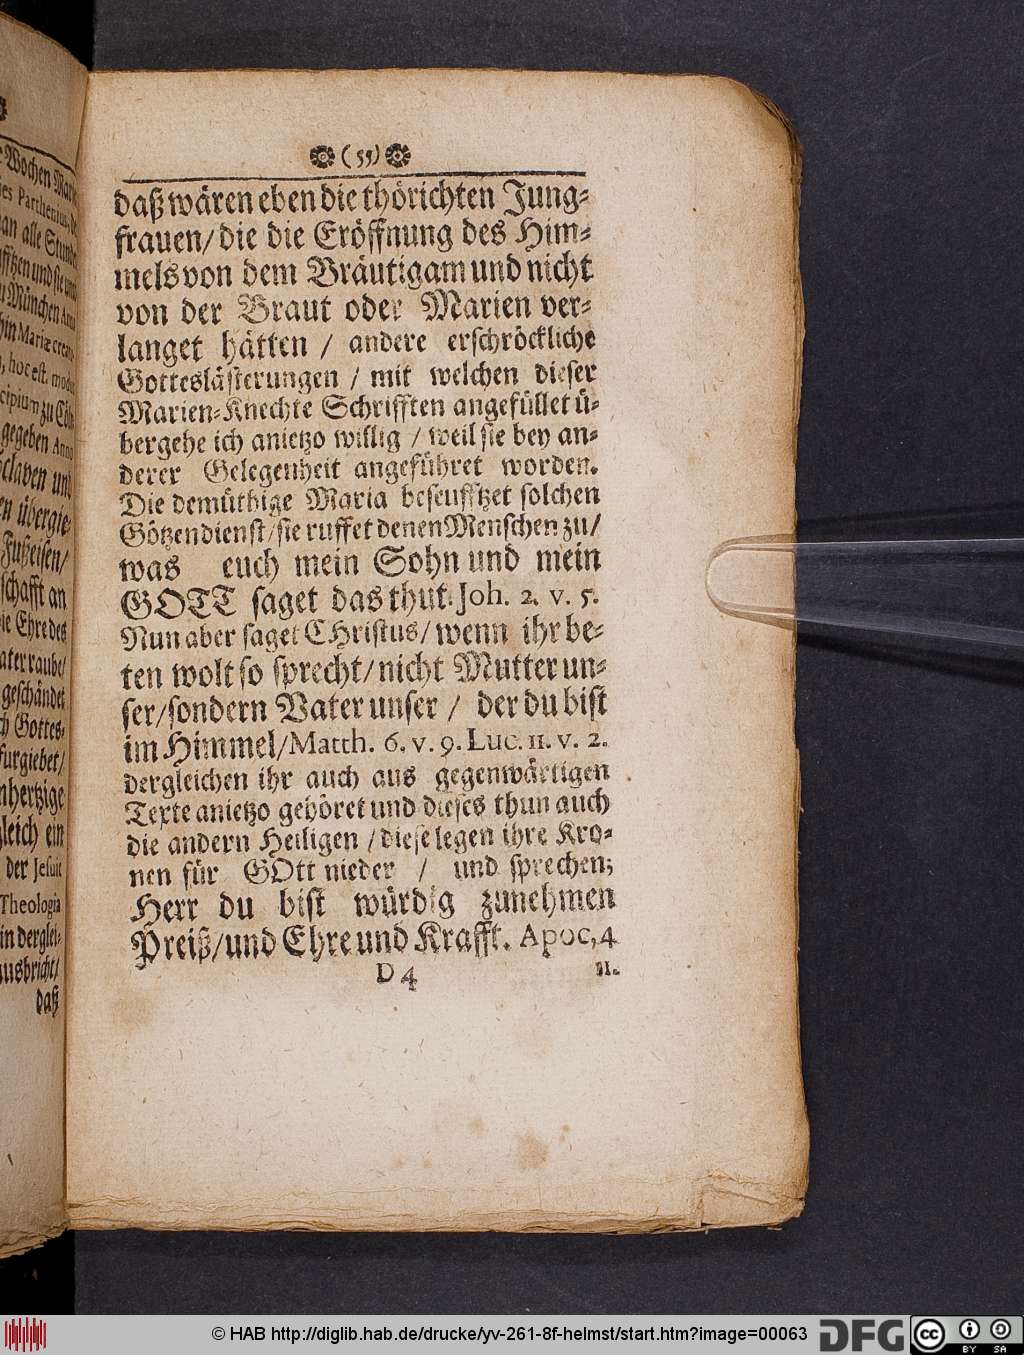 (55)
daß wären eben die thörichten Jung-
frauen/ die die Eröffnung des Him-
mels von dem Bräutigam und nicht
von der Braut oder Marien ver-
langet hätten / andere erschröckliche
Gotteslästerungen / mit welchen dieser
Marien-Knechte Schrifften angefüllet ü-
bergehe ich anietzo willig / weil sie bey an-
derer Gelegenheit angeführet worden.
Die demüthige Maria beseufftzet solchen
Götzendienst/ sie ruffet denen Menschen zu/
was euch mein Sohn und mein
GOTT saget das thut. Joh. 2. v. 5.
Nun aber saget CHristus/ wenn ihr be-
ten wolt so sprecht/ nicht Mutter un-
ser/ sondern Vater unser / der du bist
im Himmel/ Matth. 6. v. 9. Luc. 11. v. 2.
dergleichen ihr auch aus gegenwärtigen
Texte anietzo gehöret und dieses thun auch
die andern Heiligen / diese legen ihre Kro-
nen für GOtt nieder / und sprechen;
Herr du bist würdig zunehmen
Preiß/ und Ehre und Krafft. Apoc, 4
D 4 11.
Wochen Mariæ
des Parthenius, de
an alle Stunde
und sie und
München Anno
Mariæ
hoc est, modus
zu Cöln
gegeben Anno
und
übergie-
Fußeisen/
schafft an
die Ehre des
Vater raube/
geschändet
Gottes-
fürgiebet/
gleich ein
der Jesuit
Theologia
in derglei-
ausbricht/
daß
© HAB http://diglib.hab.de/drucke/yv-261-8f-helmst/start.htm?image=00063
DFG
cc
BY SA